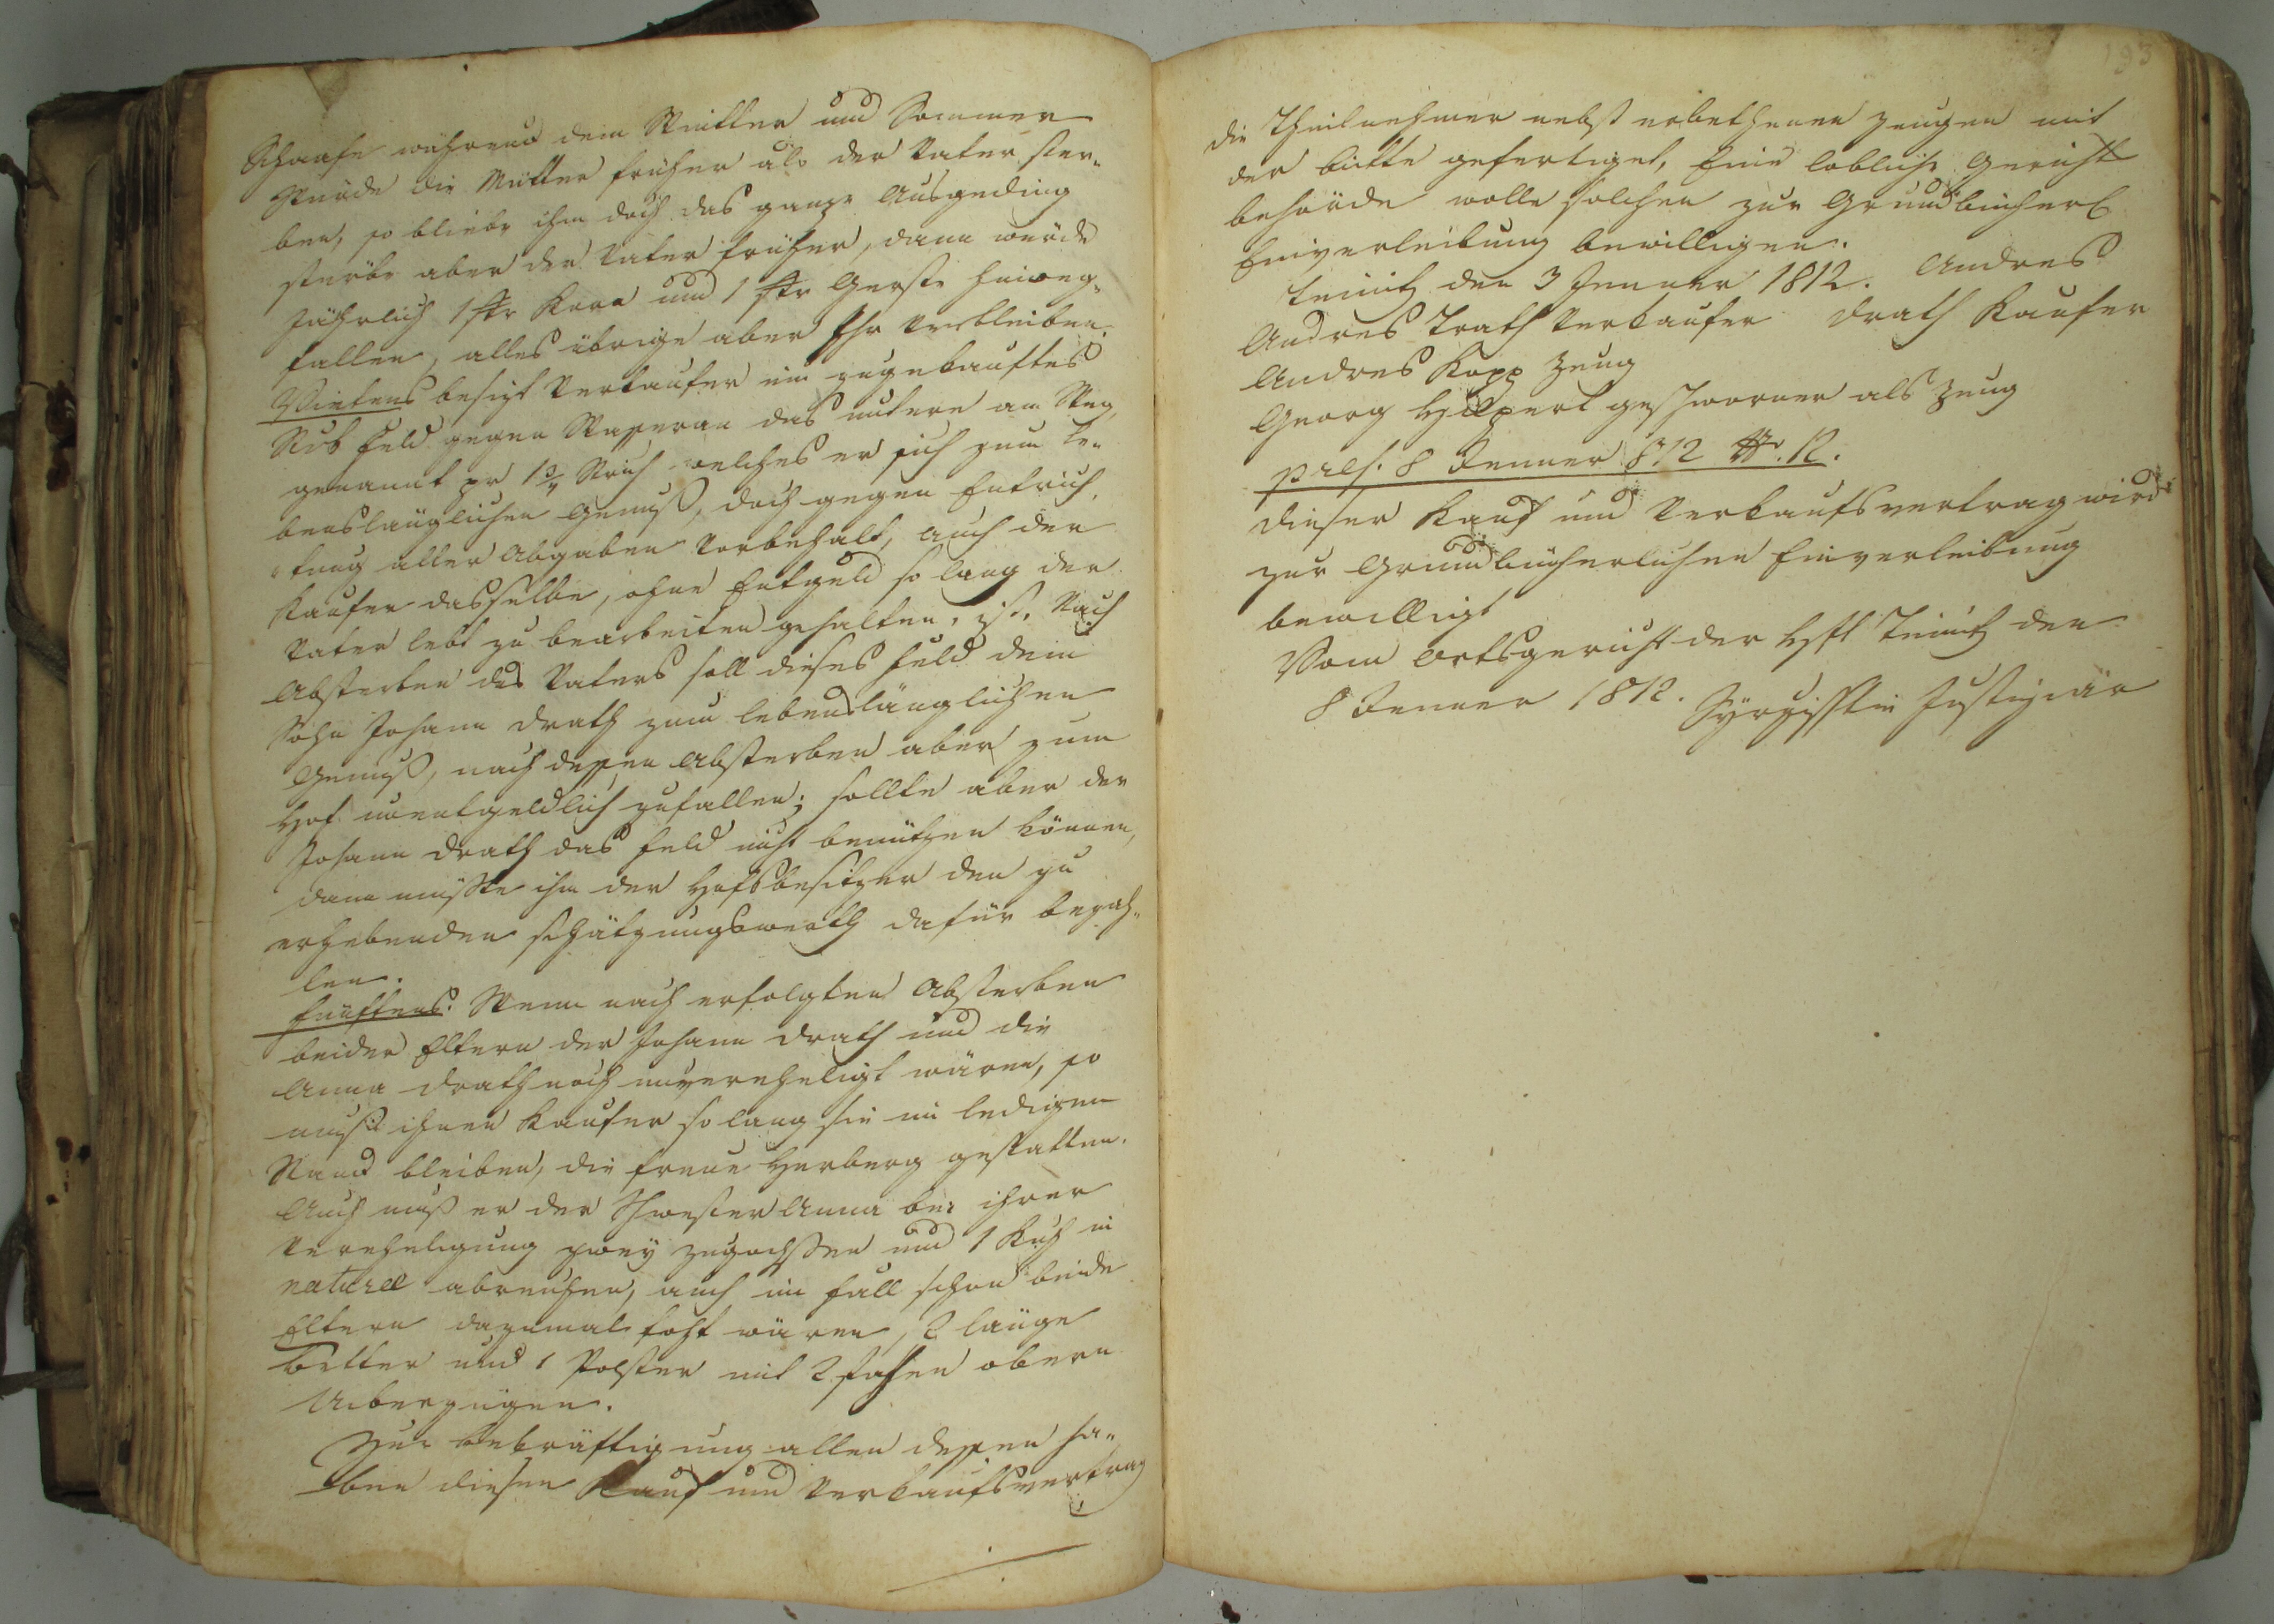 Schaafe während dem Winter und Sommer
Würde die Mutter früher als der Vater ster-
ben, so bliebe ihm doch das ganze Ausgeding
sterbe aber der Vater früher, dann werde
jährlich 1 str Korn und 1 str Gerste hinweg-
fallen, alles übrige aber Ihr verbleiben.
Viertens besizt Verkaufer ein zugekauftes
Feld gegen das untere am Weg
genannt pr 1 3/4 Strich welches er sich zum le-
benslänglichen Genuß, doch gegen Entrich-
tung aller Abgaben vorbehalt, auch der
Kaufer dasselbe, ohne Entgeld so lang der
Vater lebt zu bearbeiten gehalten ist. Nach
Absterben des Vaters soll dieses Feld dem
Sohn Johann Drath zum lebenslänglichen
Genuß, nach dessen Absterben aber zum
Hof unentgeldlich zufallen; sollte aber der
Johann Drath das Feld nicht benützen können,
dann müßte ihm der Hofsbesitzer den zu
erhebenden schätzungswerth dafür bezah-
len.
Fünftens. Wenn nach erfolgten Absterben
beider Eltern der Johann Drath und die
Anna Drath noch unverheligt wären, so
muß ihnen Kaufer so lang sie im ledigen
Stand bleiben, die freue Herberg gestatten.
Auch muß er der Schwester Anna bei ihrer
Vereheligung zwey Zugochsen und 1 Kuh in
natura abreichen, auch im fall schon beide
Eltern dazumal todt wären, 2 lange
Better und 1 Polster mit 2 fachen obern
Uiberzügen.
Zur Bekräftigung allen dessen ha-
ben diesen Kauf und Verkaufsvertrag
193
die Theilnehmer nebst erbethenen Zeugen mit
der bitte gefertiget, Eine lobliche Gericht
behörde wolle solchen zur Grundbücherl
Einverleibung bewilligen.
Teinitz den 3 Jenner 1812. Andres
Andres Trath Verkaufer Drath Kaufer
Andres Kopp Zeug
Georg Hilpert geschworner als Zeug
pres. 8 Jenner 812 Nr. 12.
Dieser Kauf und Verkaufsvertrag wird
zur Grundbücherlichen Einverleibung
bewilligt
Vom Ortsgericht der Hft Teinitz den
8 Jenner 1812. Justiziär